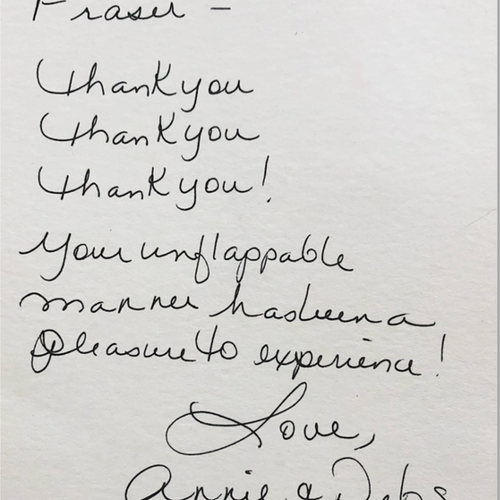 Fraser –
Thank you
Thank you
Thank you!
Your unflappable
manner has been a
pleasure to experience!
Love,
Annie & Debs